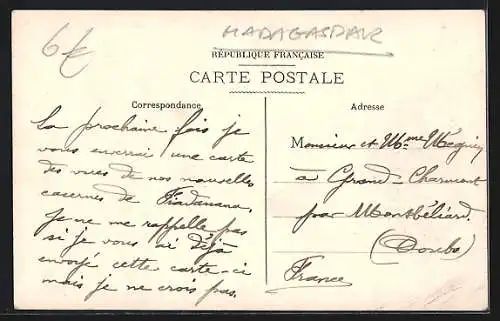 6€
MADAGASCAR
RÉPUBLIQUE FRANÇAISE
CARTE POSTALE
Correspondance
Adresse
La prochaine fois je
vous enverrai une carte
des vues de nos nouvelles
casernes de
Je ne me rappelle pas
si je vous ai DÉJÀ
envoyé cette carte-ci
mais je ne crois pas.
Monsieur et Mme
à Grand-Charmont
par Montbéliard
(Doubs)
France